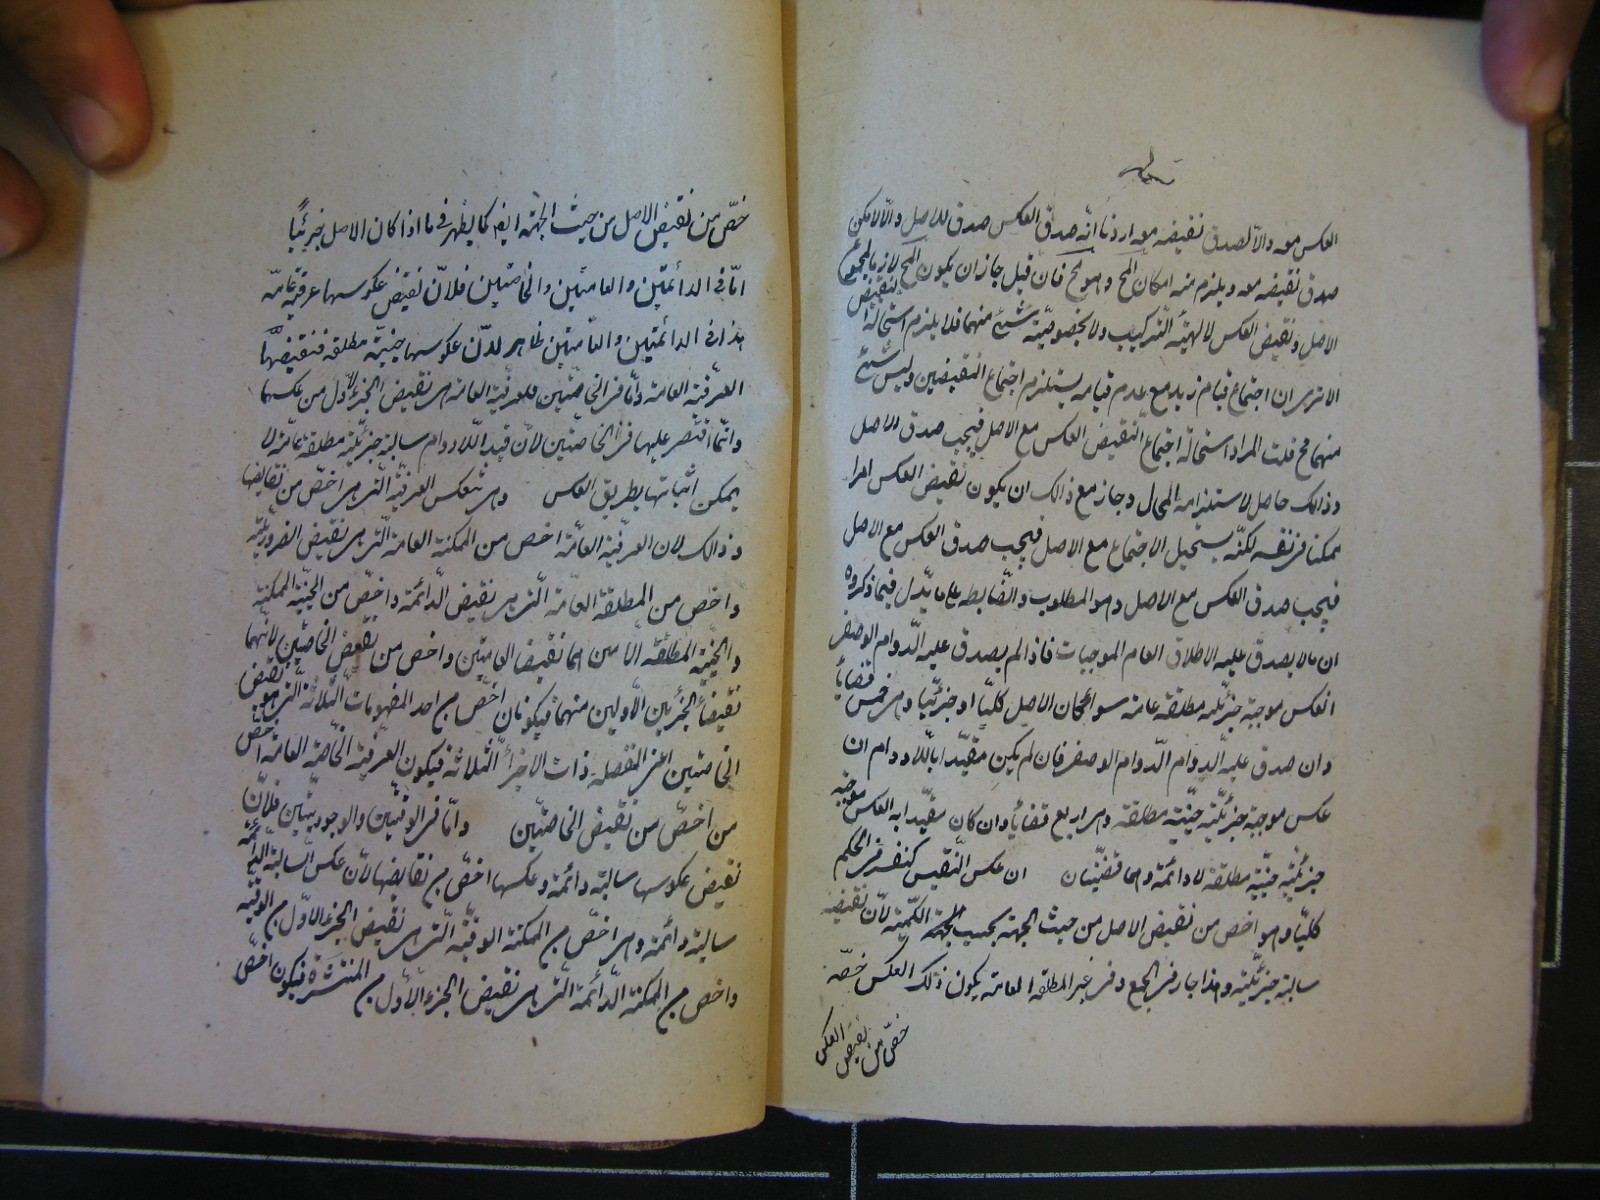 العكس معه والا لصدق نقيضه معه اذ ذا انه صدق العكس صدق للاصل والا لامكن
صدق نقيضه معه ويلزم منه امكان المح وهو مح فان قيل جاز ان يكون المح لازما لمجموع
الاصل ونقيض العكس لا لهيئة التركيب ولا بخصوصية شئ منهما فلا يلزم استحالة نقيض
الا ترى ان اجتماع قيام زيد مع عدم قيامه يستلزم اجتماع النقيضين وليس شئ
منهما مح قلت المراد استحالة اجتماع النقيض العكس مع الاصل فيجب صدق الاصل
وذالك حاصل لاستلزامه المحال وجاز مع ذالك ان يكون نقيض العكس امرا
ممكنا فى نفسه لكنه يستحيل الاجتماع مع الاصل فيجب صدق العكس مع الاصل
فيجب صدق العكس مع الاصل وهو المطلوب والضابطه على ما يدل فيما ذكروه
ان ما لا يصدق عليه الاطلاق العام الموجبات فاذا لم يصدق عليه الدوام الوصفى
انعكس موجبة جزئية مطلقة عامة سواء كان الاصل كليا او جزئيا وهى خمس قضايا
وان صدق عليه الدوام الدوام الوصفى فان لم يكن مقيدا باللادوام ان
عكس موجبة جزئية حينية مطلقة وهى اربع قضايا وان كان مقيدا به العكس موجبة
جزئية حينية مطلقة لا دائمة وهما قضيتان ان عكس النقيض كنفسه فى الحكم
كليا وهو اخص من نقيض الاصل من حيث الجهة بحسب الجهة الكمية لان نقيضه
سالبة جزئية وهذا جار فى الجمع وفى غير المطلقة العامة يكون ذلك العكس خصه
خص من نقيض العكس
خص من نقيض الاصل من حيث الجهة ايض كما يظهر فى ما اذا كان الاصل جزئيا
اما فى الدائمتين والعامتين والخاصتين فلان نقيض عكوسها عرفية عامة
هذا فى الدائمتين والعامتين ظاهر لان عكوسها حينية مطلقه فنقيضها
العرفية العامة واما فى الخاصتين فلعرفية العامة هى نقيض الجزء الاول من عكسها
وانما اقتصر عليها فى الخاصتين لان قيد اللادوام سالبة جزئية مطلقة عامة لا
يمكن اثباتها بطريق العكس وهى تنعكس العرفية التى هى اخص من نقايضها
وذالك لان العرفية العامة اخص من الممكنة العامة التى هى نقيض الضرورية
واخص من المطلقة العامة التى هى نقيض الدائمة واخص من الحينية الممكنية
والحينية المطلقة اللامين هما نقيضا العامتين واخص من نقيض الخاصتين لانهما
نقيضا الجزئين الاولين منهما فيكونان اخص من احد المفهومات الثلاثة التى هو نقيض
الخاصتين اعنى المنفصلة ذات الاجزاء الثلاثة فيكون العرفية الخاصة العامة اخص
من اخص من نقيض الخاصتين واما فى الوقتيتين والوجوديتين فلان
نقيض عكوسها سالبة دائمة وعكسها اخص من نقايضها لان عكس السالبة الدائمة
سالبة دائمة وهى اخص من الممكنة الوقتية التى هى نقيض الجزء الاول من الوقتية
واخص من الممكنة الدائمة التى هى نقيض الجزء الاول من المنتشرة فيكون اخص